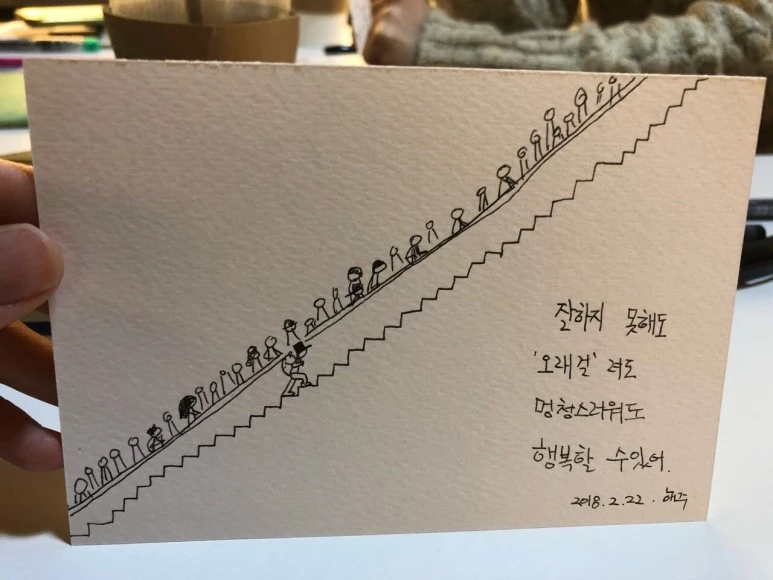 잘하지 못해도
'오래걸' 려도
멍청스러워도
행복할 수있어.
2018.2.22.